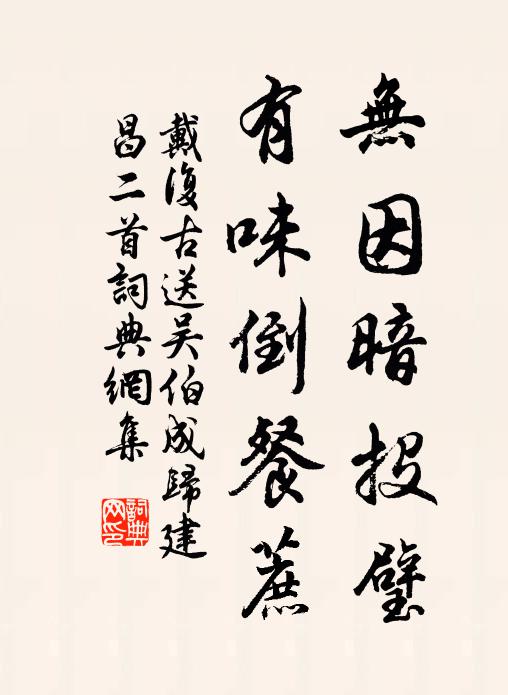 無因暗投璧
有味倒餐蔗
戴復古送吴伯成歸建
昌二首詞典網集
詞典
网印